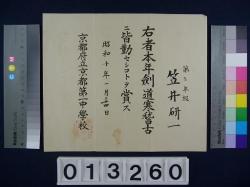 第五年級
笠井研一
右者本年劍道寒稽古
ニ皆勤セシコトヲ賞ス
昭和十年一月
京都府立京都第一中學校
013260